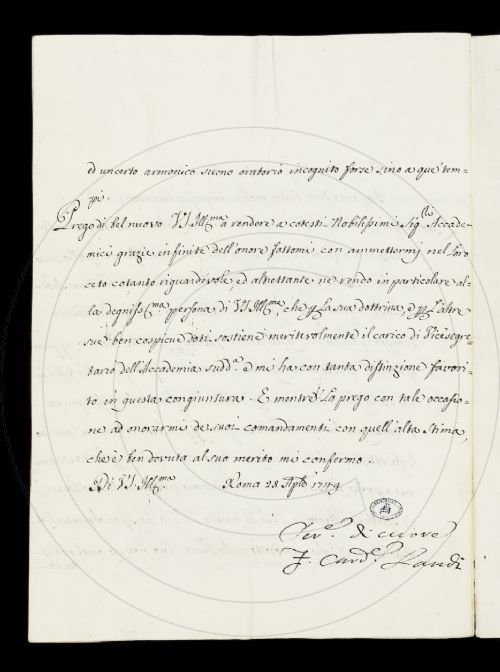 ed un certo armonico suono oratorio incognito forse sino a que' tem=
pi.
Prego di bel nuovo V.S. Ill.ma a rendere a cotesti Nobilissimi Sig.ri Accade=
mici grazie infinite dell'onore fattomi con ammettermi nel loro
ceto cotanto riguardevole, ed altrettante ne rendo in particolare al=
la degniss.ma persona di V.S. Ill.ma, che per la sua dottrina, e per l'altre
sue ben cospicue doti sostiene meritevolmente il carico di Vicesegre=
tario dell'Accademia sudd.a e mi ha con tanta distinzione favori=
to in questa congiuntura. E mentre La prego con tale occasio=
ne ad onorarmi de suoi comandamenti con quell'alta stima,
che è ben dovuta al suo merito mi confermo.
Di V.S. Ill.ma Roma 28 1749
Ser.e di cuore
F. Card.e Landi